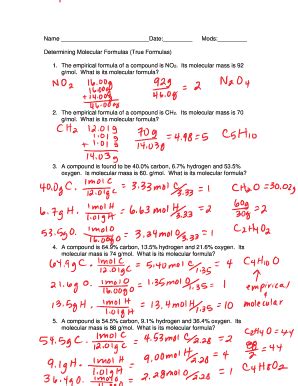 Name Date: Mods:
Determining Molecular Formulas (True Formulas)
1. The empirical formula of a compound is NO₂. Its molecular mass is 92
g/mol. What is its molecular formula?
NO₂ 16.00g
16.00g
+14.00g
46.00g
92g / 46.0g = 2 N₂O₄
2. The empirical formula of a compound is CH₂. Its molecular mass is 70
g/mol. What is its molecular formula?
CH₂ 12.01g
1.01g
+ 1.01g
14.03g
70g / 14.03g = 4.98 = 5 C₅H₁₀
3. A compound is found to be 40.0% carbon, 6.7% hydrogen and 53.5%
oxygen. Its molecular mass is 60. g/mol. What is its molecular formula?
40.0g C · 1mol C / 12.01g C = 3.33 mol C / 3.33 = 1 CH₂O = 30.02g
6.7g H · 1mol H / 1.01g H = 6.63 mol H / 3.33 = 2 60g / 30g = 2
53.5g O · 1mol O / 16.00g O = 3.34 mol O / 3.33 = 1 C₂H₄O₂
4. A compound is 64.9% carbon, 13.5% hydrogen and 21.6% oxygen. Its
molecular mass is 74 g/mol. What is its molecular formula?
64.9g C · 1mol C / 12.01g C = 5.40 mol C / 1.35 = 4 C₄H₁₀O
21.6g O · 1mol O / 16.00g O = 1.35 mol O / 1.35 = 1 ↑
empirical
13.5g H · 1mol H / 1.01g H = 13.4 mol H / 1.35 = 10 molecular
5. A compound is 54.5% carbon, 9.1% hydrogen and 36.4% oxygen. Its
molecular mass is 88 g/mol. What is its molecular formula?
54.5g C · 1mol C / 12.01g C = 4.53 mol C / 2.28 = 2 C₂H₄O = 44
9.1g H · 1mol H / 1.01g H = 9.00 mol H / 2.28 = 4 88 / 44 = 2
36.4g O · 1mol O / 16.00g O = 2.28 mol O / 2.28 = 1 C₄H₈O₂